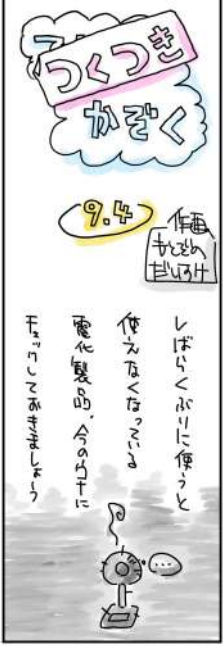 つくつき
かぞく
9.4
作画
もとぞの
だいすけ
しばらくぶりに使うと
使えなくなっている
電化製品、今のウチに
チェックしておきましょ〜う
…